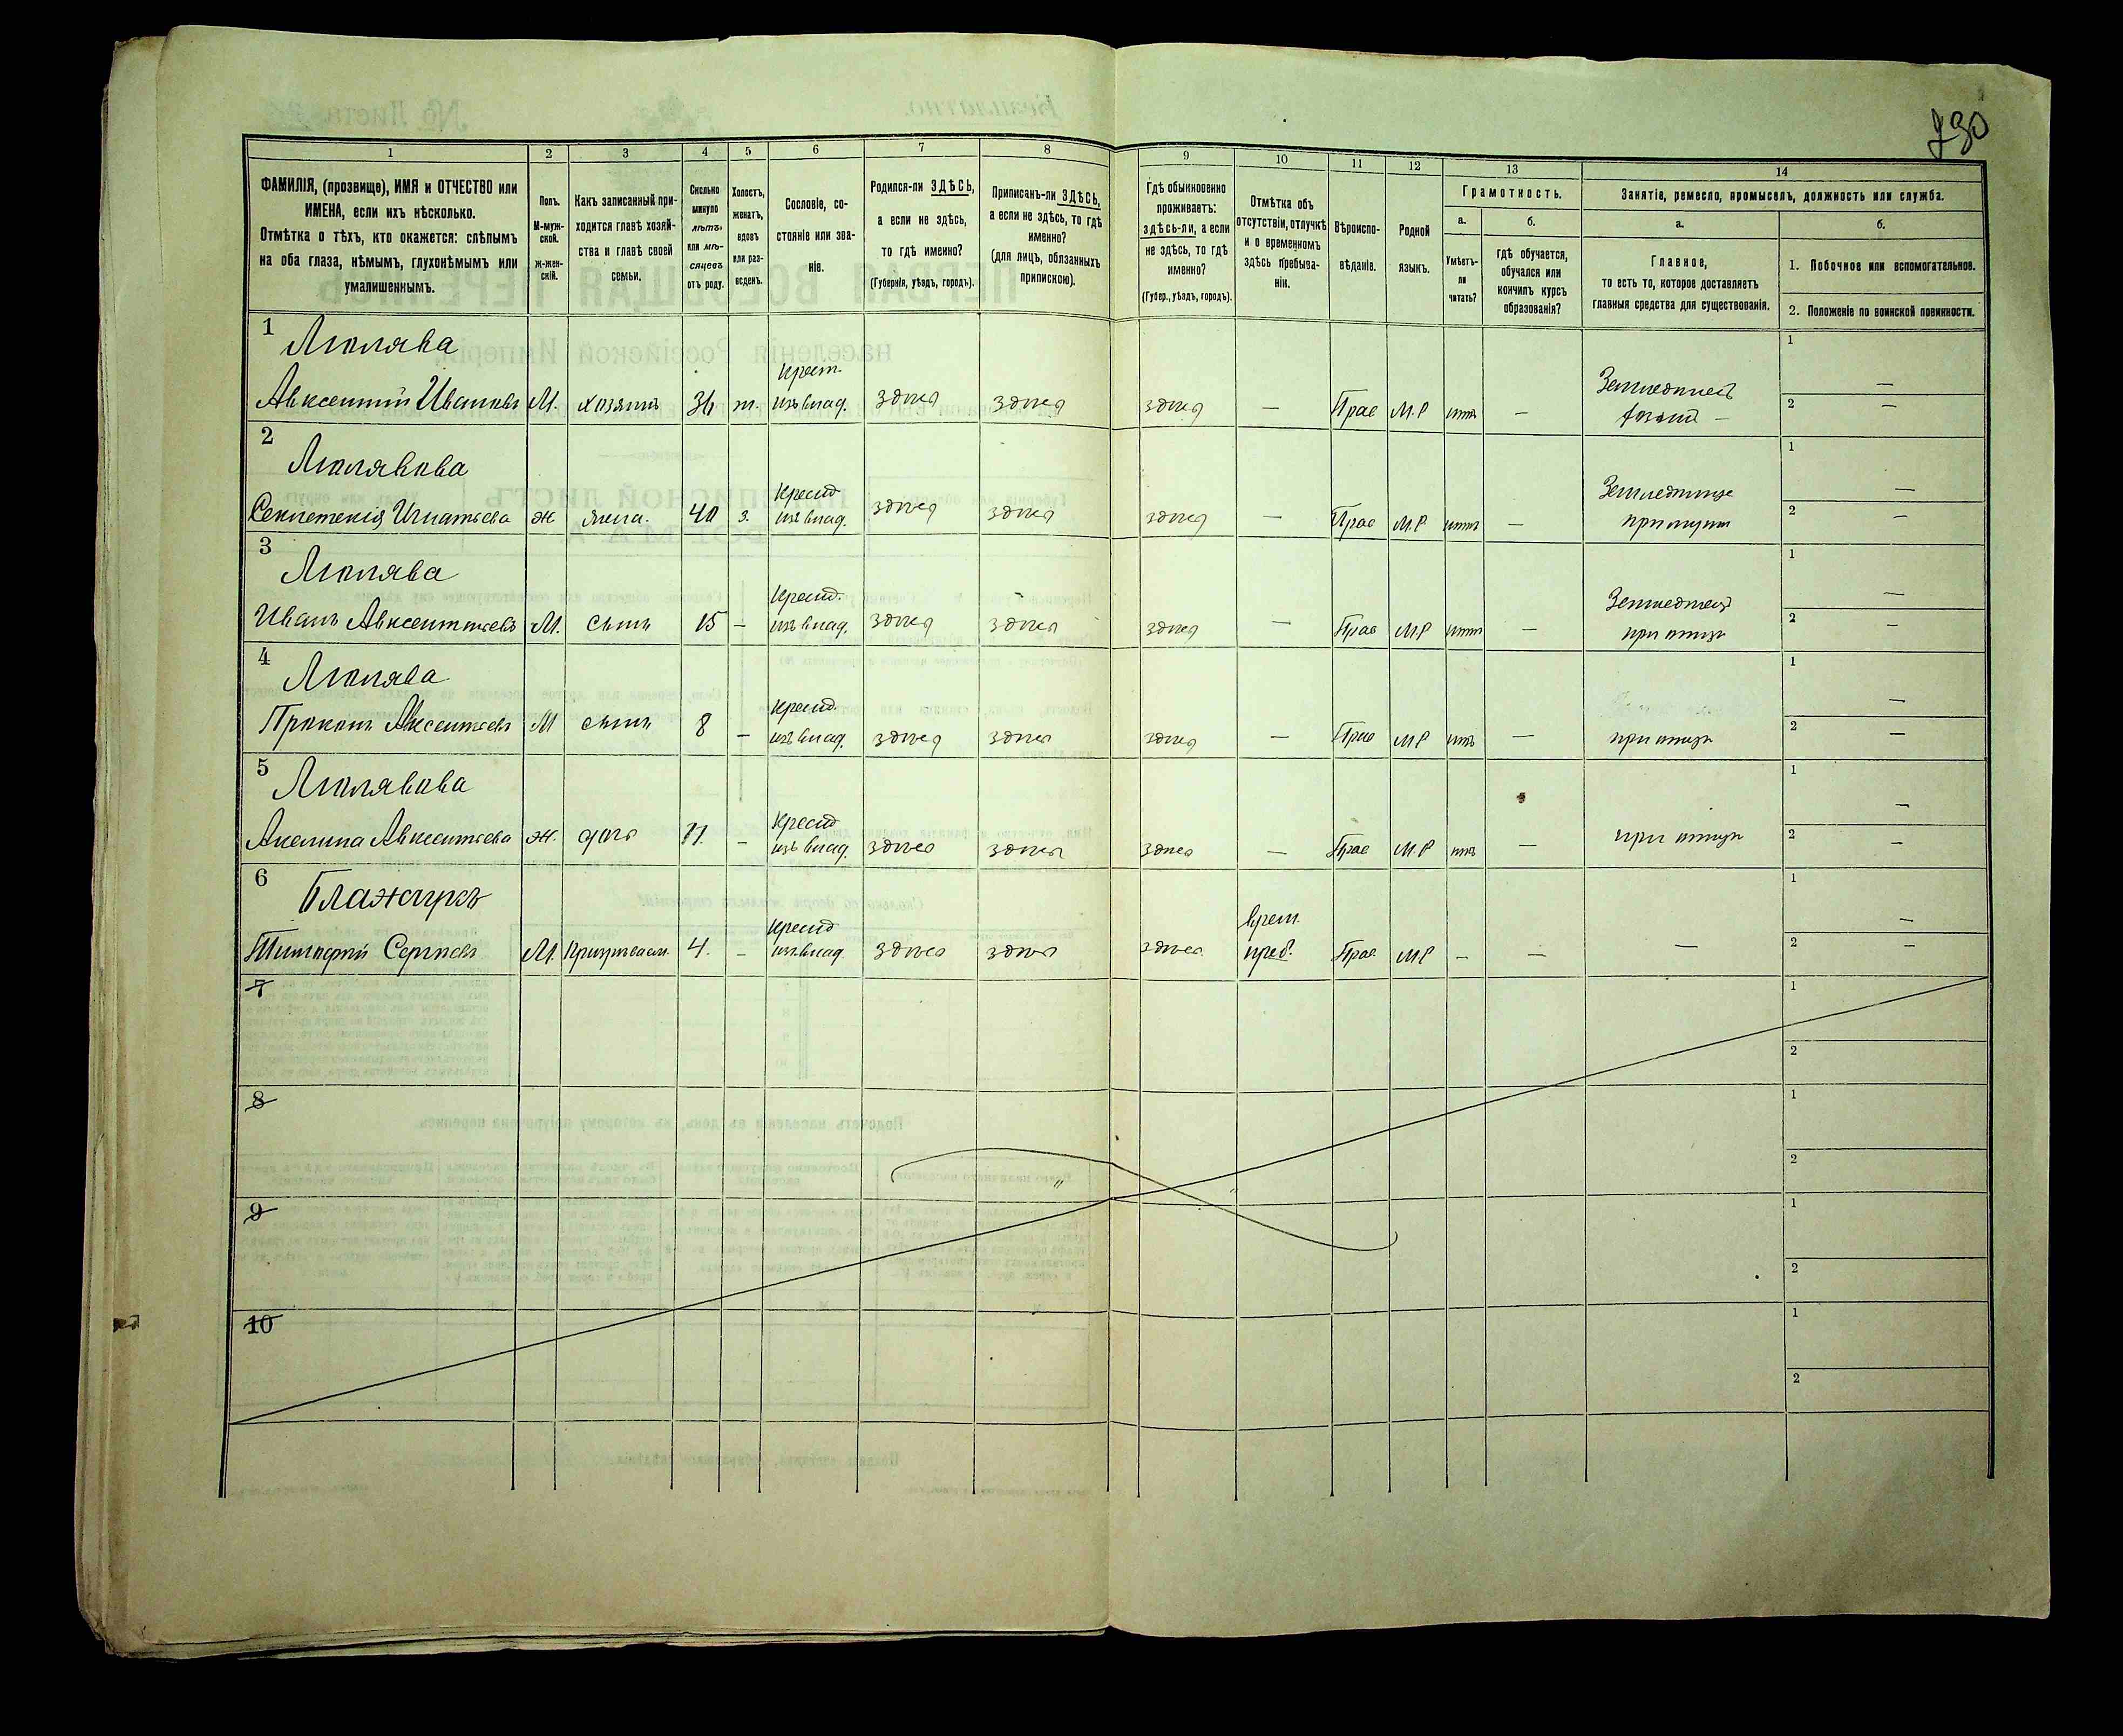 730
1 2 3 4 5 6 7 8 9 10 11 12 13 14
ФАМИЛІЯ, (прозвище), ИМЯ и ОТЧЕСТВО или ИМЕНА, если ихъ нѣсколько.
Отмѣтка о тѣхъ, кто окажется: слѣпымъ на оба глаза, нѣмымъ, глухонѣмымъ или умалишеннымъ.
Полъ. М-муж-ской. ж-жен-скій.
Какъ записанный при-ходится главѣ хозяй-ства и главѣ своей семьи.
Сколько минуло лѣтъ или мѣ-сяцевъ отъ роду.
Холостъ, женатъ, вдовъ или раз-веденъ.
Сословіе, со-стояніе или зва-ніе.
Родился-ли ЗДѢСЬ, а если не здѣсь, то гдѣ именно? (Губернія, уѣздъ, городъ).
Приписанъ-ли ЗДѢСЬ, а если не здѣсь, то гдѣ именно? (для лицъ, обязанныхъ припискою).
Гдѣ обыкновенно проживаетъ: здѣсь-ли, а если не здѣсь, то гдѣ именно? (Губер., уѣздъ, городъ).
Отмѣтка объ отсутствіи, отлучкѣ и о временномъ здѣсь пребыва-ніи.
Вѣроиспо-вѣданіе.
Родной языкъ.
Грамотность.
а. Умѣетъ-ли читать?
б. гдѣ обучается, обучался или кончилъ курсъ образованія?
Занятіе, ремесло, промыселъ, должность или служба.
а. Главное, то есть то, которое доставляетъ главныя средства для существованія.
б. 1. Побочное или вспомогательное.
2. Положеніе по воинской повинности.
1 Люлява
Авксентій Ивановъ М. хозяинъ 36 ж. Крест. изъ влад. здѣсь здѣсь здѣсь — Прав М.Р нѣтъ — 1 — 2 —
2 Люлявова
Ж жена. 40 з. Кресть изъ влад. здѣсь здѣсь здѣсь — Прав М.Р нѣтъ — 1 — 2 —
3 Люлява
Иванъ Авксентіевъ М. сынъ 15 — Кресть. изъ влад. здѣсь здѣсь здѣсь — Прав М.Р нѣтъ — 1 — 2 —
4 Люлява
Прокопъ Авксентіевъ М сынъ 8 — Кресть. изъ влад. здѣсь здѣсь здѣсь — Прав М.Р нѣтъ — 1 — 2 —
5 Люлявова
Акелина Авксентіева Ж. дочь 11. — Кресть изъ влад. здѣсь здѣсь здѣсь — Прав М.Р нѣтъ — 1 — 2 —
6
Тимофій Сергѣевъ М. 4. — Кресть изъ влад. здѣсь здѣсь здѣсь врем. преб. Прав. М.Р — — — 1 — 2 —
7 1 2
8 1 2
9 1 2
10 1 2